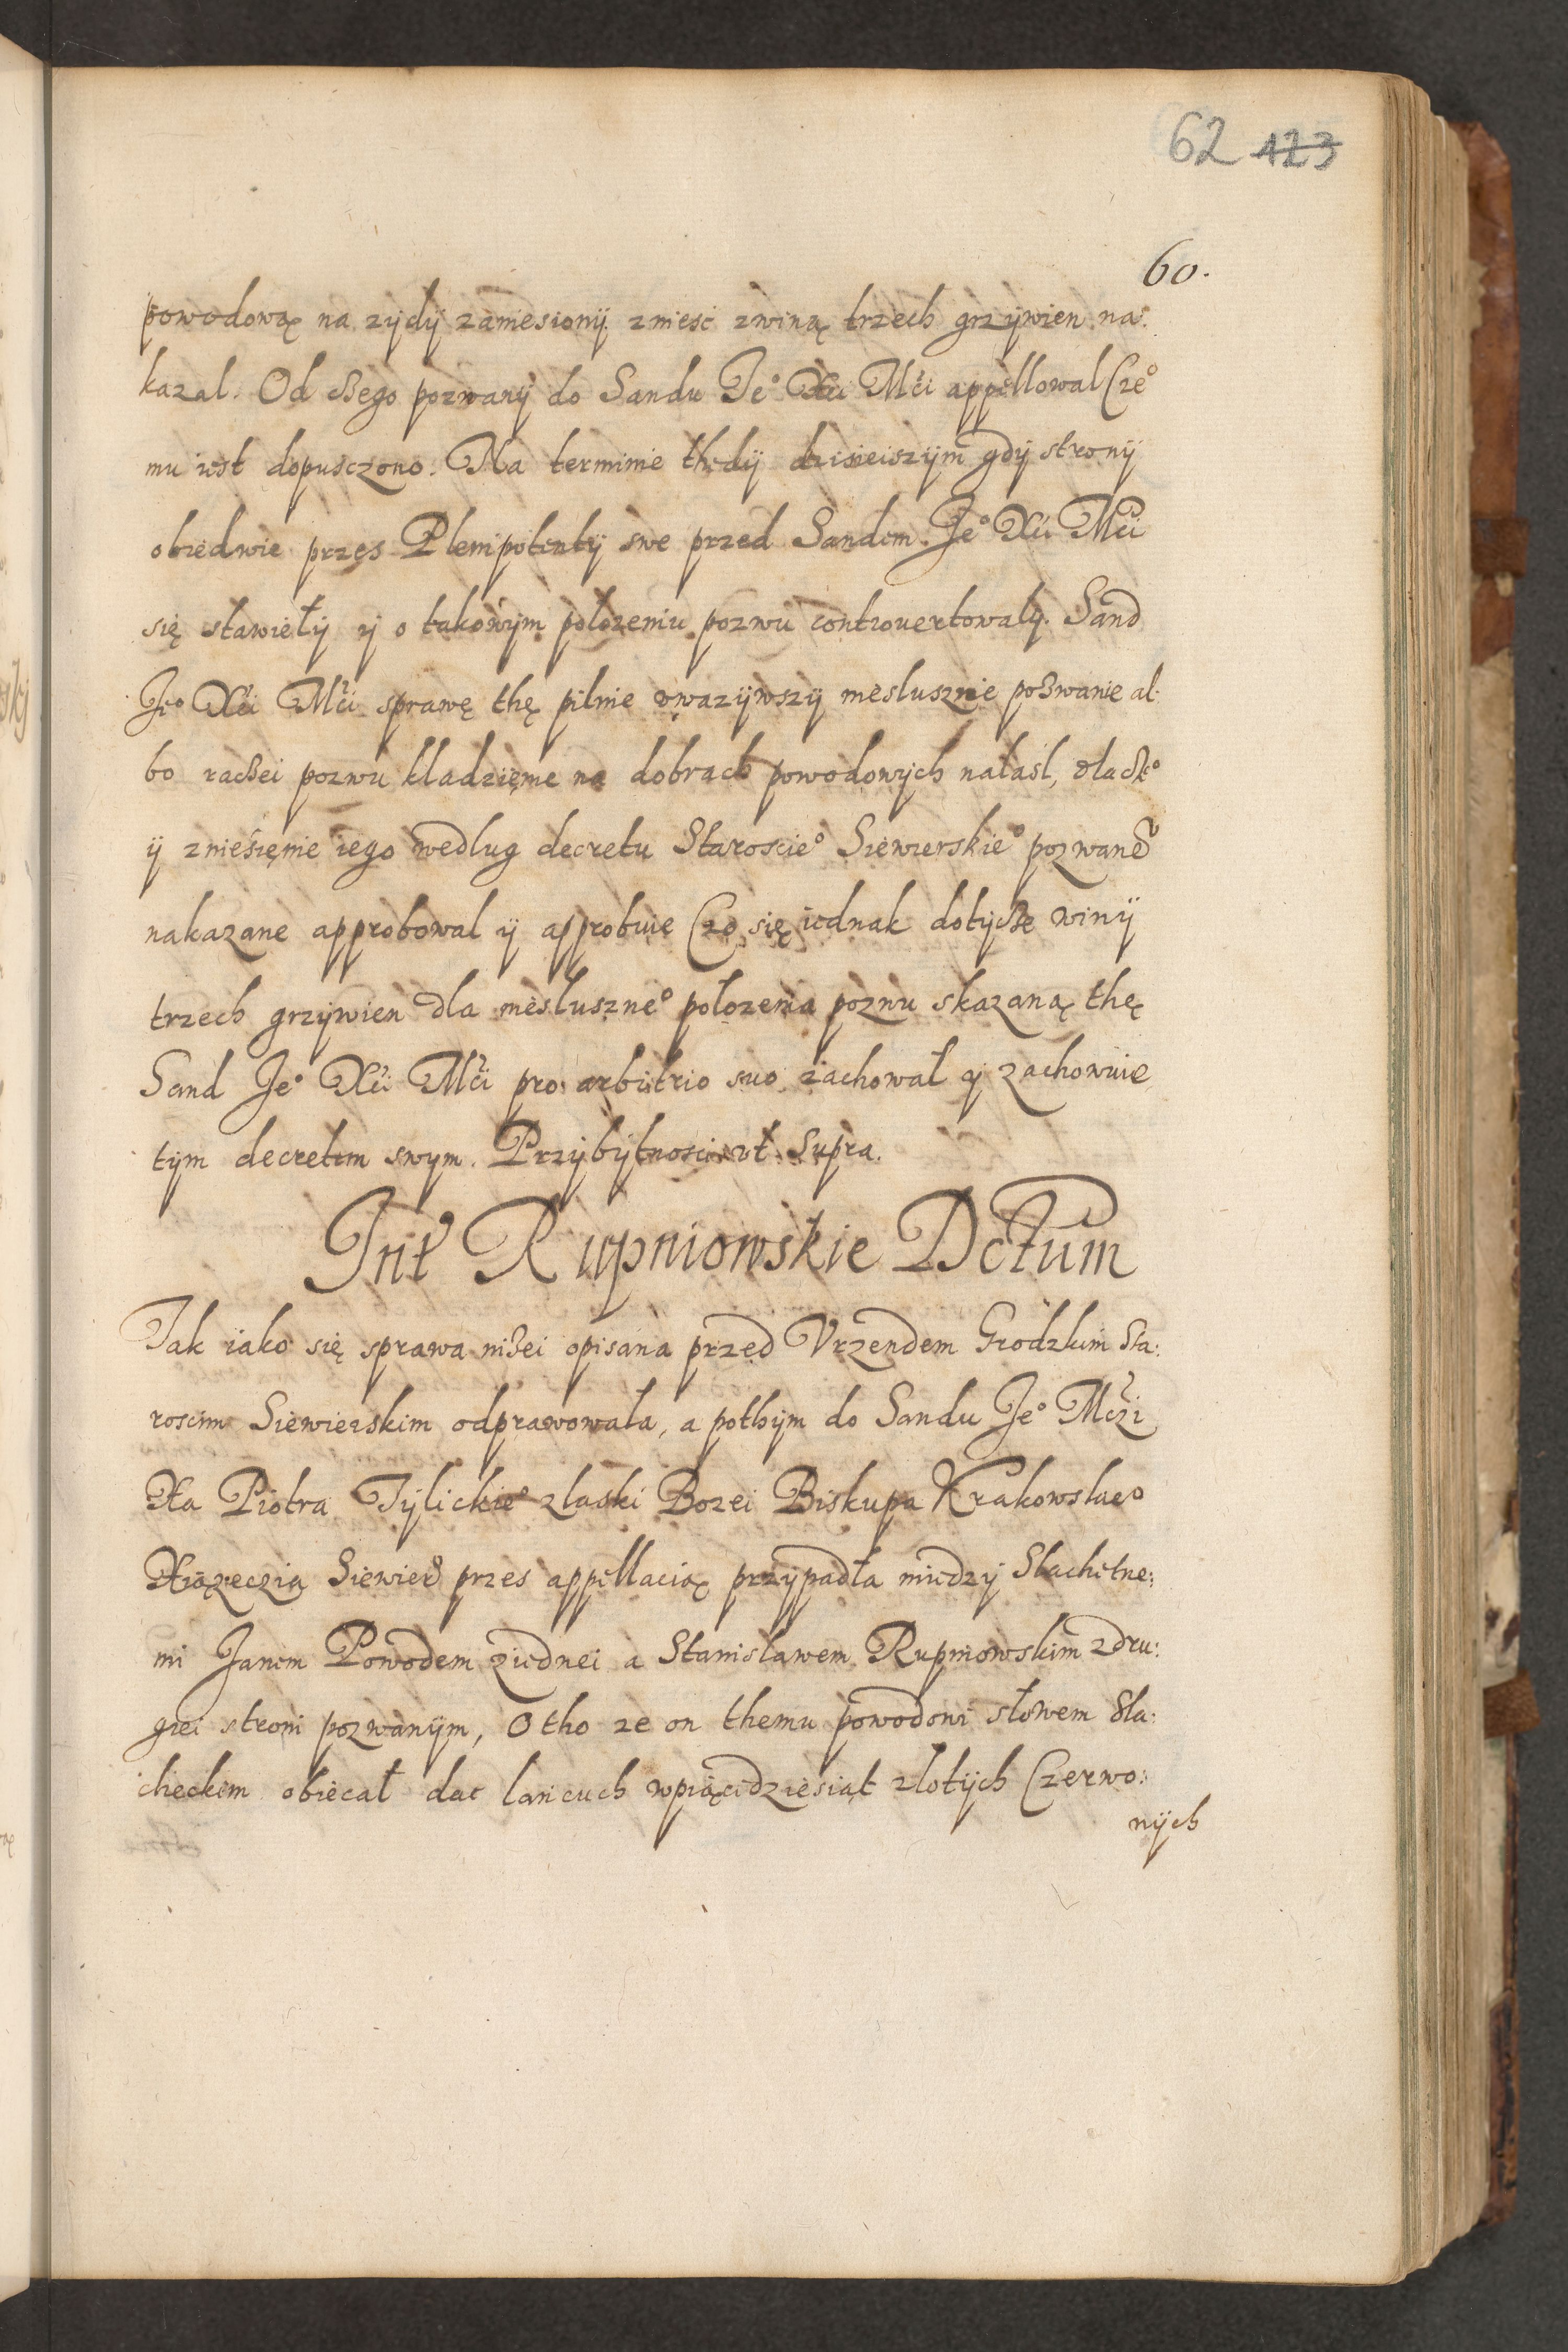 62 123
60.
powodową na zydÿ zaniesionÿ zniesc zwiną trzech grzÿwien na:
kazal. Od czego pozwanÿ do Sandu Je° Xci Mci appellowal Cze°
mu iest dopusczono. Na terminie thedÿ dzisieiszÿm gdÿ stronÿ
obiedwie przes Plenipotentÿ swe przed Sandem Je° Xci Mci
się stawiełÿ ÿ o takowÿm połozeniu pozwu controuertowalÿ. Sand
Je° Xci Mci sprawę thę pilnie vwazÿwszÿ niesłusznie pozwanie al:
bo raczei pozwu kladzięnie na dobrach powodowÿch nalasl, dlacze°
ÿ zniesięnie iego wedlug decretu Staroscie° Siewierskie° pozwane°
nakazane approbowal ÿ approbuie Czo się iednak dotÿcze winÿ
trzech grzÿwien dla niesłuszne° połozenia pozwu skazaną thę
Sand Je° Xci Mci pro arbitrio suo zachował ÿ zachowuie
tÿm decretem swym. Przÿ bÿtnosci vt Supra.
Int Rupniowskie Dctum
Tak iako się sprawa nizei opisana przed Vrzendem Grodzkim Sta:
roscim Siewierskim odprawowała, a pothÿm do Sandu Je° Mczi
Xa Piotra Tÿlickie° zlaski Bozei Biskupa Krakowskie°
Xiązeczia Siewier przes appellacią przÿpadła miedzÿ Slachetne:
mi Janem Powodem ziednei a Stanisławem Rupniowskim zdru:
giei stroni pozwanÿm, O tho ze on themu powodowi słowem Sla:
checkim obiecał dac lancuch wpięcidziesiąt zlotÿch Czerwo:
nÿch